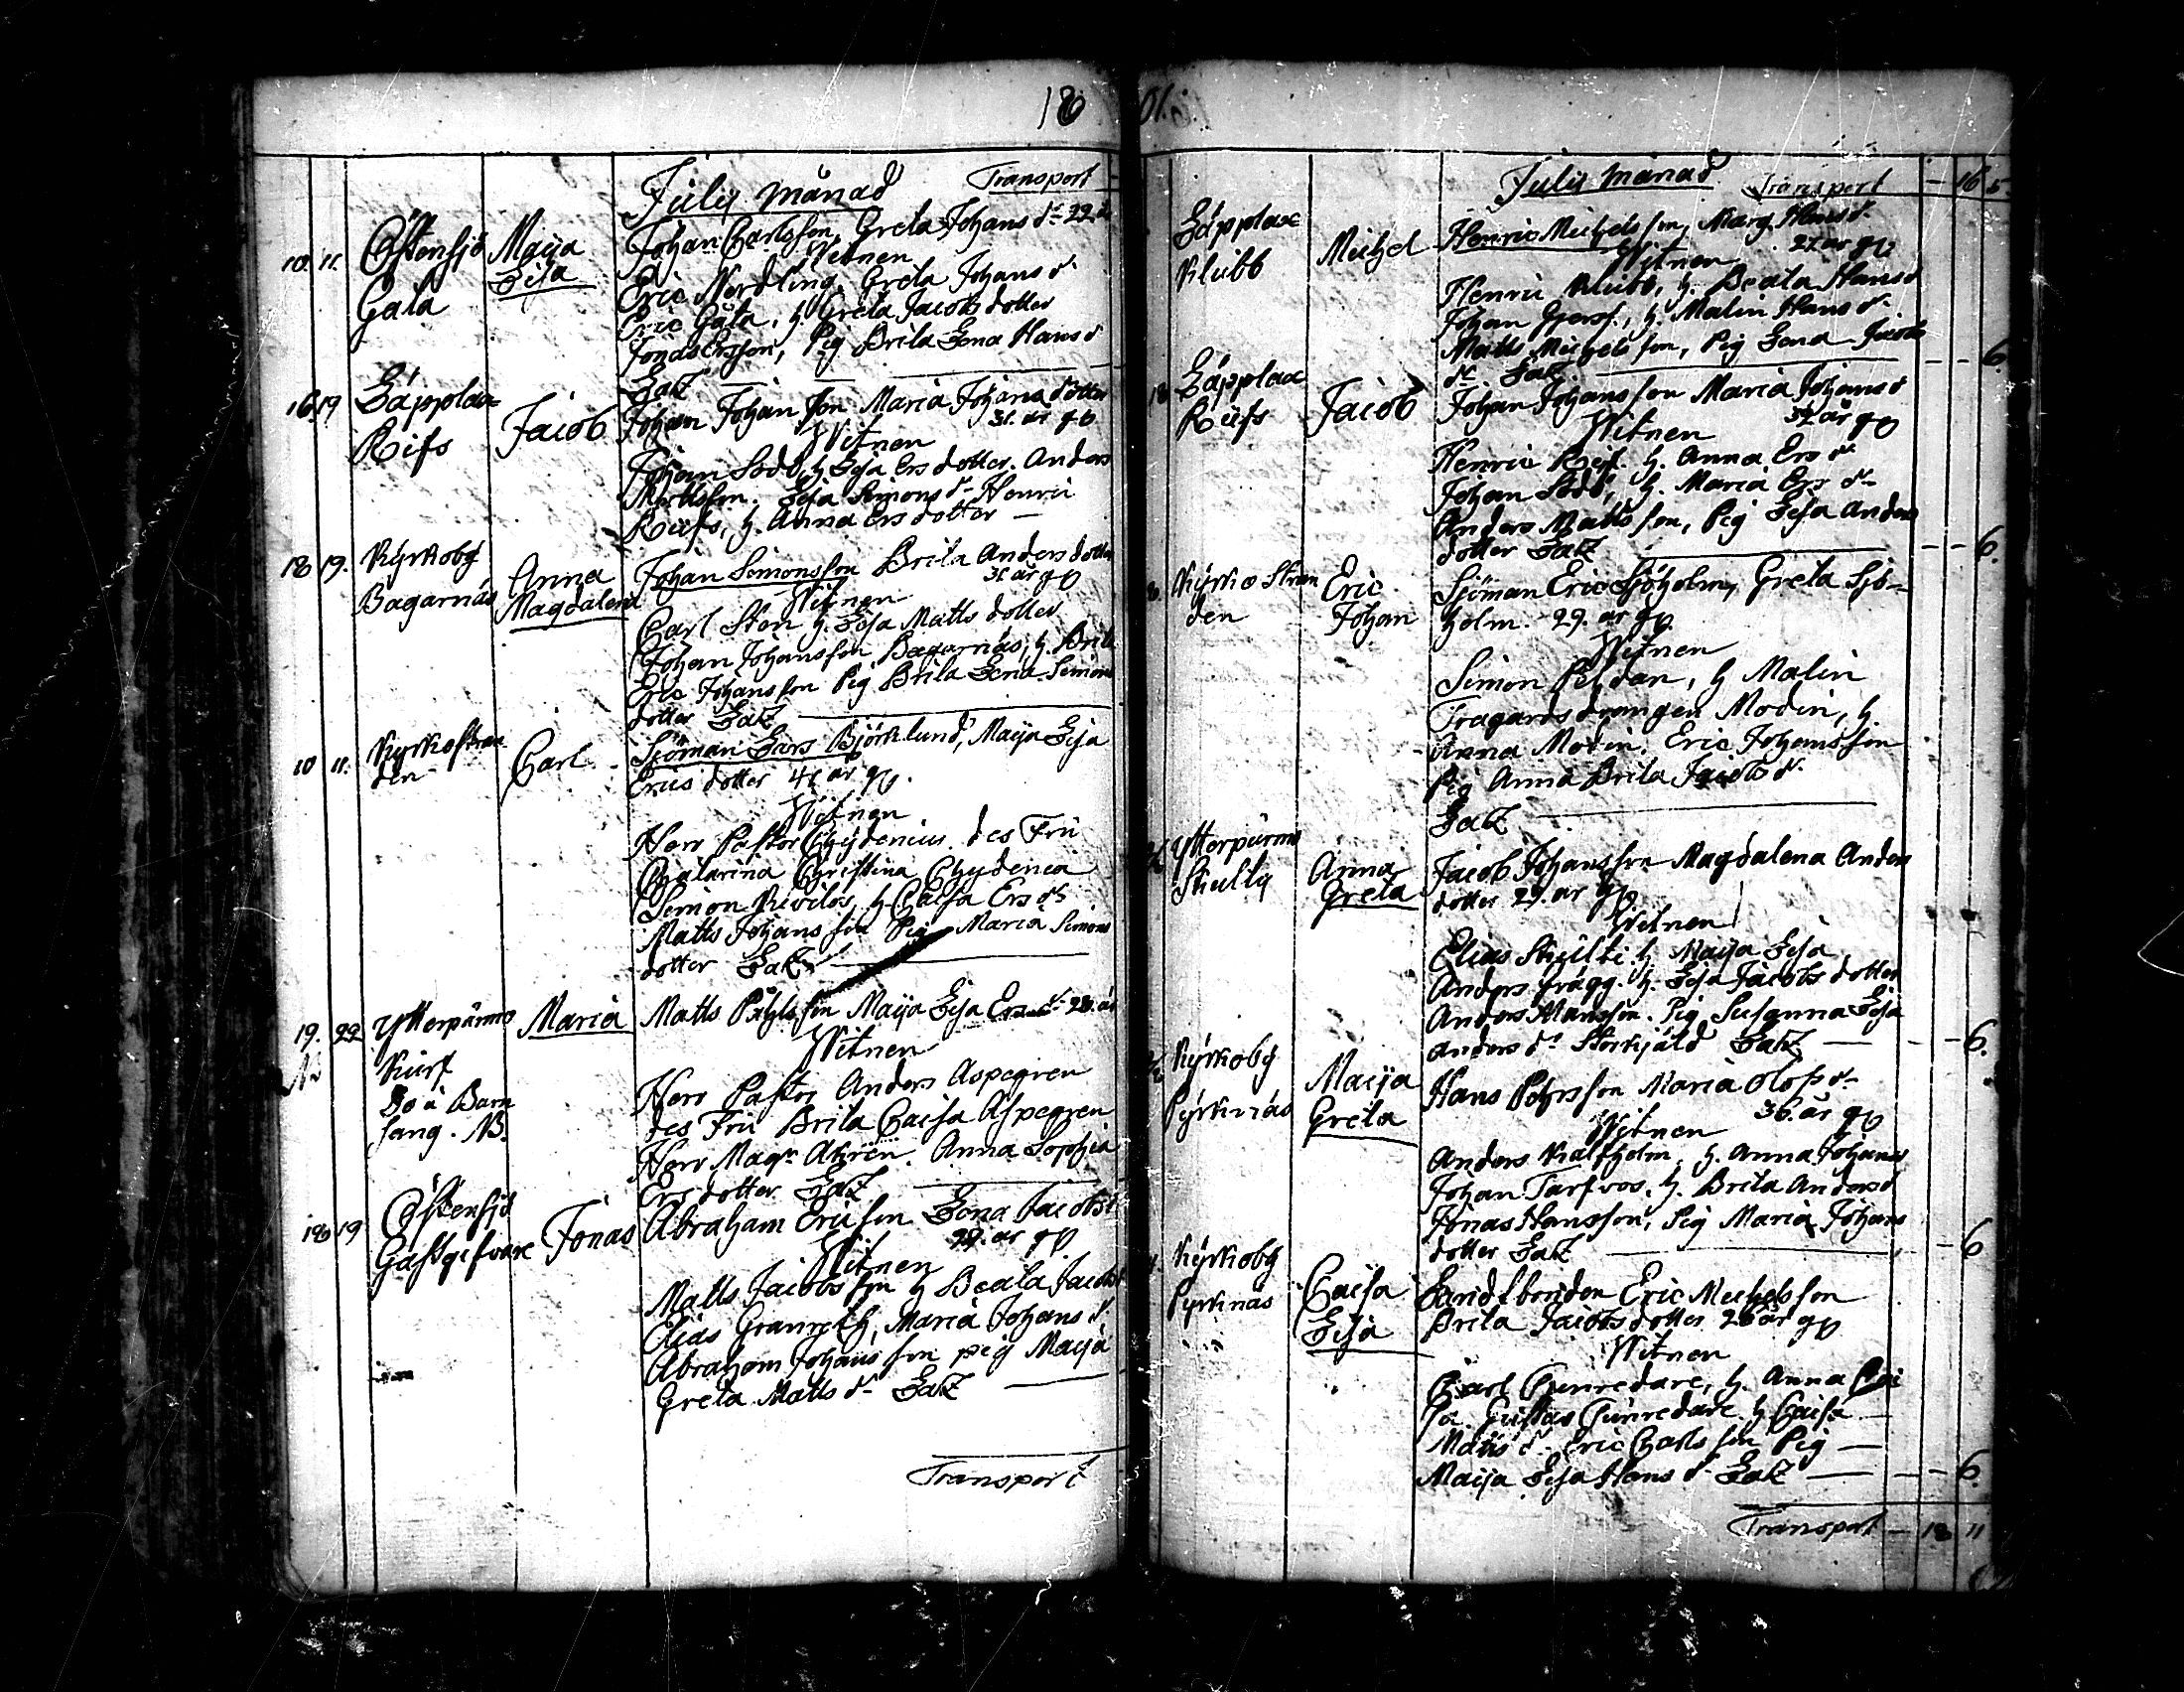 1801.
Julii Månad Transport
10. 11. Östensjö Maija Johan Carlsson, Greta Johans dr 22. å
Gata Lisa Witnen
Eric Nordling, Greta Johans dr
Eric Gata, h. Greta Jacobs dotter
Jonas Ersson, Pig Brita Lena Hans d
Salt
16. 19 Läpplax Jacob Johan Johansson Maria Johans dotter
Reifs 31. år gb
Witnen
Johan Södd, h Lisa Ers dotter. Anders
Mattsson. Lisa Simons dr Henric
Reifs, h. Anna Ers dotter
18 19. Kyrkoby Anna Johan Simonsson Brita Anders dotter
Bagarnäs Magdalena 31. år gb
Witnen
Carl Sten h. Lisa Matts dotter
Johan Johansson Bagarnäs, h. Brita
Eric Johansson Pig Brita Lena Simons
dotter Salt
10 11. Kyrkostran Carl Sjöman Lars Björklund, Maija Lisa
den Erics dotter 41 år gb.
Witnen
Herr Pastor Chydenius des Fru
Chatarina Christina Chydenia
Simon h Caisa Ers dr
Matts Johansson Pig Maria Simons
dotter Salt
19. 22 Ytterpärmo Maria Matts Påhlsson Maija Lisa Ers dr 28. år
Nb Witnen
Do i Barn Herr Pastor Anders Aspegren
säng. NB. des Fru Brita Caisa Aspegren
Herr Magr Ahren. Anna Sophia
Ers dotter Salt
18 19 Östensjö Jonas Abraham Ericsson Lena Jacobs d
Gästgifvare 29. år gb
Witnen
Matts Jacobsson h Beata Jacobs d
Elias Granroth, Maria Johans dr
Abraham Johansson pig Maija
Greta Matts dr Salt
Transport
Julii Månad Transport - 16 5
Läpplax Michel Henric Michelsson, Marg. Hans dr
Klubb 27 år gb
Witnen
Henric Klubb, h. Beata Hans d
Johan h. Malin Hans dr
Matts Michelsson, Pig Lena Jacobs
dr Salt - - 6.
18 Läpplax Jacob Johan Johansson Maria Johans d
Reifs 32 år gb
Witnen
Henric Reif. h. Anna Ers dr
Johan Södd, h. Maria Ers dr
Anders Mattsson, Pig Lisa Anders
dotter Salt - - 6.
Kyrko Stran Eric Sjöman Eric Sjöholm, Greta Sjö-
den Johan holm. 29. år gb.
Witnen
Simon Peldan, h Malin
Tragårdsdrängen Modin, h.
Anna Modin. Eric Johansson
Pig Anna Brita Jacobs dr
Salt
Ytterpärmo Anna Jacob Johansson Magdalena Anders
Skulty Greta dotter 29. år gb
Witnen
Elias Skulti h. Maija Lisa
Anders Frägg. h. Lisa Jacobs dotter
Anders Mansson. Pig Susanna Lisa
Anders dr Storkjäld Salt - - 6.
Kyrkoby Maija Hans Pehrsson Maria Olofs dr
Pyrknäs Greta 36. år gb
Witnen
Anders Kalfholm, h. Anna Johans
Johan Tarfvos, h. Brita Anders d
Jonas Hansson, Pig Maria Johans
dotter Salt - 6
Kyrkoby Caisa Landtbonden Eric Michelsson
Pyrknäs Lisa Brita Jacobs dotter 26 år gb
Witnen
Carl Cunredare, h. Anna Cai
sa. Gustas Cunredare h Caisa
Matts dr Eric Carlsson Pig
Maija Lisa Hans dr Salt - - 6.
Transport - 18 11